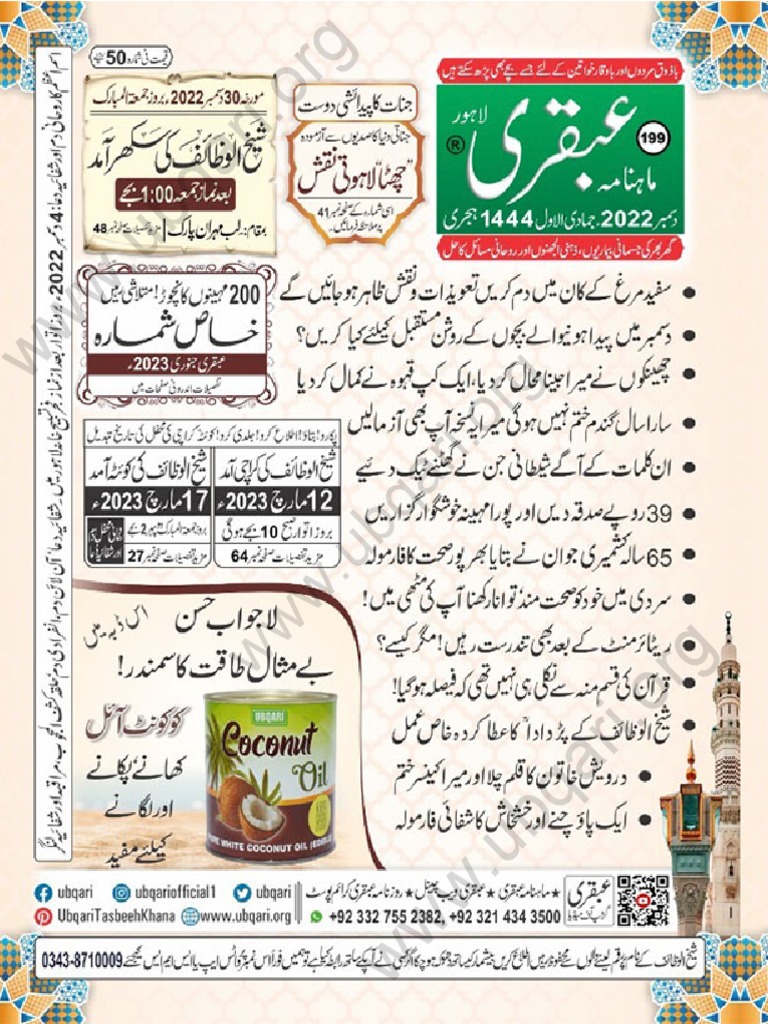 باذوق مردوں اور باوقار خواتین کے لئے جسے بچے بھی پڑھ سکتے ہیں
لاہور
199
ماہنامہ عبقری
®
دسمبر 2022ء جمادی الاول 1444 ہجری
گھر بھر کی جسمانی بیماریوں، ذہنی الجھنوں اور روحانی مسائل کا حل
قیمت فی شمارہ 50
جنات کا پیدائشی دوست
جناتی دنیا کا صدیوں سے آزمودہ
"چھٹا" لاہوتی نقش
اسی شمارہ کے صفحہ نمبر 41
پر ملاحظہ فرمائیں۔
مورخہ 30 دسمبر 2022ء بروز جمعۃ المبارک
شیخ الوظائف کی سکھر آمد
بعد نماز جمعہ 1:00 بجے
بمقام: لب مہران پارک | مزید تفصیلات صفحہ نمبر 48
200 مہینوں کا نچوڑ! متلاشی ہیں
خاص شمارہ
عبقری جنوری 2023ء
تفصیلات اندرونی صفحات میں
پکارو! بتاؤ! اطلاع کرو! جلدی کرو! کوئٹہ کراچی کی محفل کی تاریخ تبدیل
شیخ الوظائف کی کراچی آمد
12 مارچ 2023ء
بروز اتوار صبح 10 بجے ہوگی
مزید تفصیلات صفحہ نمبر 64
شیخ الوظائف کی کوئٹہ آمد
17 مارچ 2023ء
بروز جمعۃ المبارک دوپہر 2 بجے
مزید تفصیلات صفحہ نمبر 27
• سفید مرغ کے کان میں دم کریں تعویذات و نقش ظاہر ہو جائیں گے
• دسمبر میں پیدا ہونیوالے بچوں کے روشن مستقبل کیلئے کیا کریں؟
• چھینکوں نے میرا جینا محال کر دیا، ایک کپ قہوہ نے کمال کر دیا
• سارا سال گندم ختم نہیں ہوگی میرا یہ نسخہ آپ بھی آزمالیں
• ان کلمات کے آگے شیطانی جن نے گھٹنے ٹیک دیئے
• 39 روپے صدقہ دیں اور پورا مہینہ خوشگوار گزاریں
• 65 سالہ کشمیری جوان نے بتایا بھرپور صحت کا فارمولہ
• سردی میں خود کو صحت مند توانا رکھنا آپ کی مٹھی میں!
• ریٹائرمنٹ کے بعد بھی تندرست رہیں! مگر کیسے؟
• قرآن کی قسم منہ سے نکلی ہی نہیں تھی کہ فیصلہ ہو گیا!
• شیخ الوظائف کے پڑدادا کا عطا کردہ خاص عمل
• درویش خاتون کا قلم چلا اور میرا کینسر ختم
• ایک پاؤ چنے اور خشخاش کا شفائی فارمولہ
لاجواب حسن
اس ڈبہ میں
بے مثال طاقت کا سمندر!
کوکونٹ آئل
کھانے پکانے
اور لگانے
کیلئے مفید
UBQARI
Coconut
Oil
PURE WHITE COCONUT OIL (EDIBLE)
ubqari ubqariofficial1 ubqari
UbqariTasbeehKhana www.ubqari.org
★ ماہنامہ عبقری ★ عبقری ویب چینل ★ روزنامہ عبقری کرائم پوسٹ
+92 332 755 2382, +92 321 434 3500
عبقری
گروپ آف میڈیا
0343-8710009
www.ubqari.org
www.ubqari.org
www.ubqari.org
www.ubqari.org